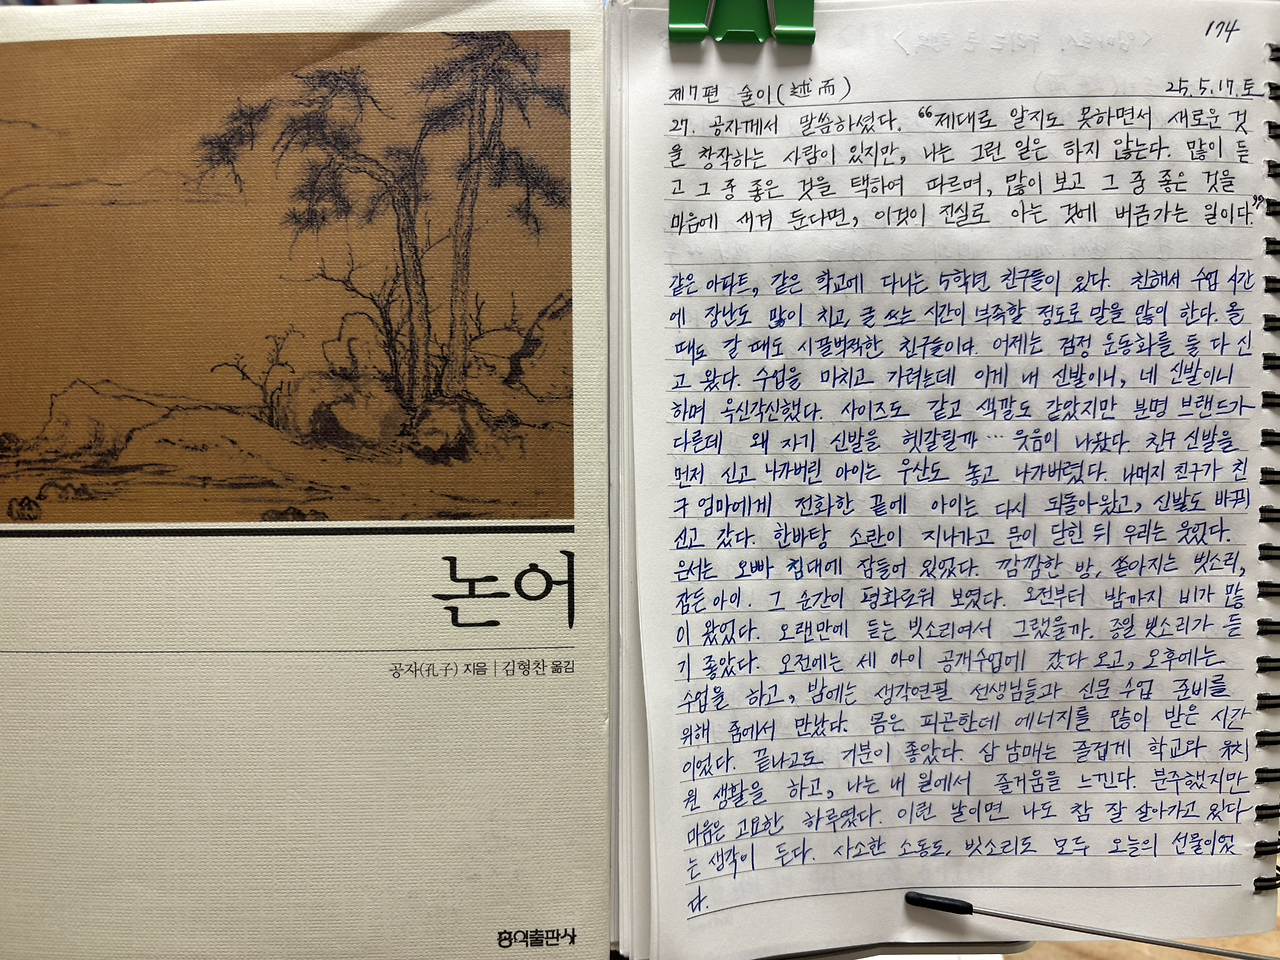 논어
공자(孔子) 지음 | 김형찬 옮김
홍익출판사
174
제7편 술이(述而) 25.5.17.토
27. 공자께서 말씀하셨다. "제대로 알지도 못하면서 새로운 것
을 창작하는 사람이 있지만, 나는 그런 일은 하지 않는다. 많이 듣
고 그 중 좋은 것을 택하여 따르며, 많이 보고 그 중 좋은 것을
마음에 새겨 둔다면, 이것이 진실로 아는 것에 버금가는 일이다."
같은 아파트, 같은 학교에 다니는 5학년 친구들이 있다. 친해서 수업 시간
에 장난도 많이 치고, 글 쓰는 시간이 부족할 정도로 말을 많이 한다. 올
때도 갈 때도 시끌벅적한 친구들이다. 어제는 검정 운동화를 둘 다 신
고 왔다. 수업을 마치고 가려는데 이게 내 신발이니, 네 신발이니
하며 옥신각신했다. 사이즈도 같고 색깔도 같았지만 분명 브랜드가
다른데 왜 자기 신발을 헷갈릴까… 웃음이 나왔다. 친구 신발을
먼저 신고 나가버린 아이는 우산도 놓고 나가버렸다. 나머지 친구가 친
구 엄마에게 전화한 끝에 아이는 다시 되돌아왔고, 신발도 바꿔
신고 갔다. 한바탕 소란이 지나가고 문이 닫힌 뒤 우리는 웃었다.
윤서는 오빠 침대에 잠들어 있었다. 깜깜한 방, 쏟아지는 빗소리,
잠든 아이. 그 순간이 평화로워 보였다. 오전부터 밤까지 비가 많
이 왔었다. 오랜만에 듣는 빗소리여서 그랬을까. 종일 빗소리가 듣
기 좋았다. 오전에는 세 아이 공개수업에 갔다 오고, 오후에는
수업을 하고, 밤에는 생각연필 선생님들과 신문 수업 준비를
위해 줌에서 만났다. 몸은 피곤한데 에너지를 많이 받은 시간
이었다. 끝나고도 기분이 좋았다. 삼 남매는 즐겁게 학교와 유치
원 생활을 하고, 나는 내 일에서 즐거움을 느낀다. 분주했지만
마음은 고요한 하루였다. 이런 날이면 나도 참 잘 살아가고 있다
는 생각이 든다. 사소한 소동도, 빗소리도 모두 오늘의 선물이었
다.